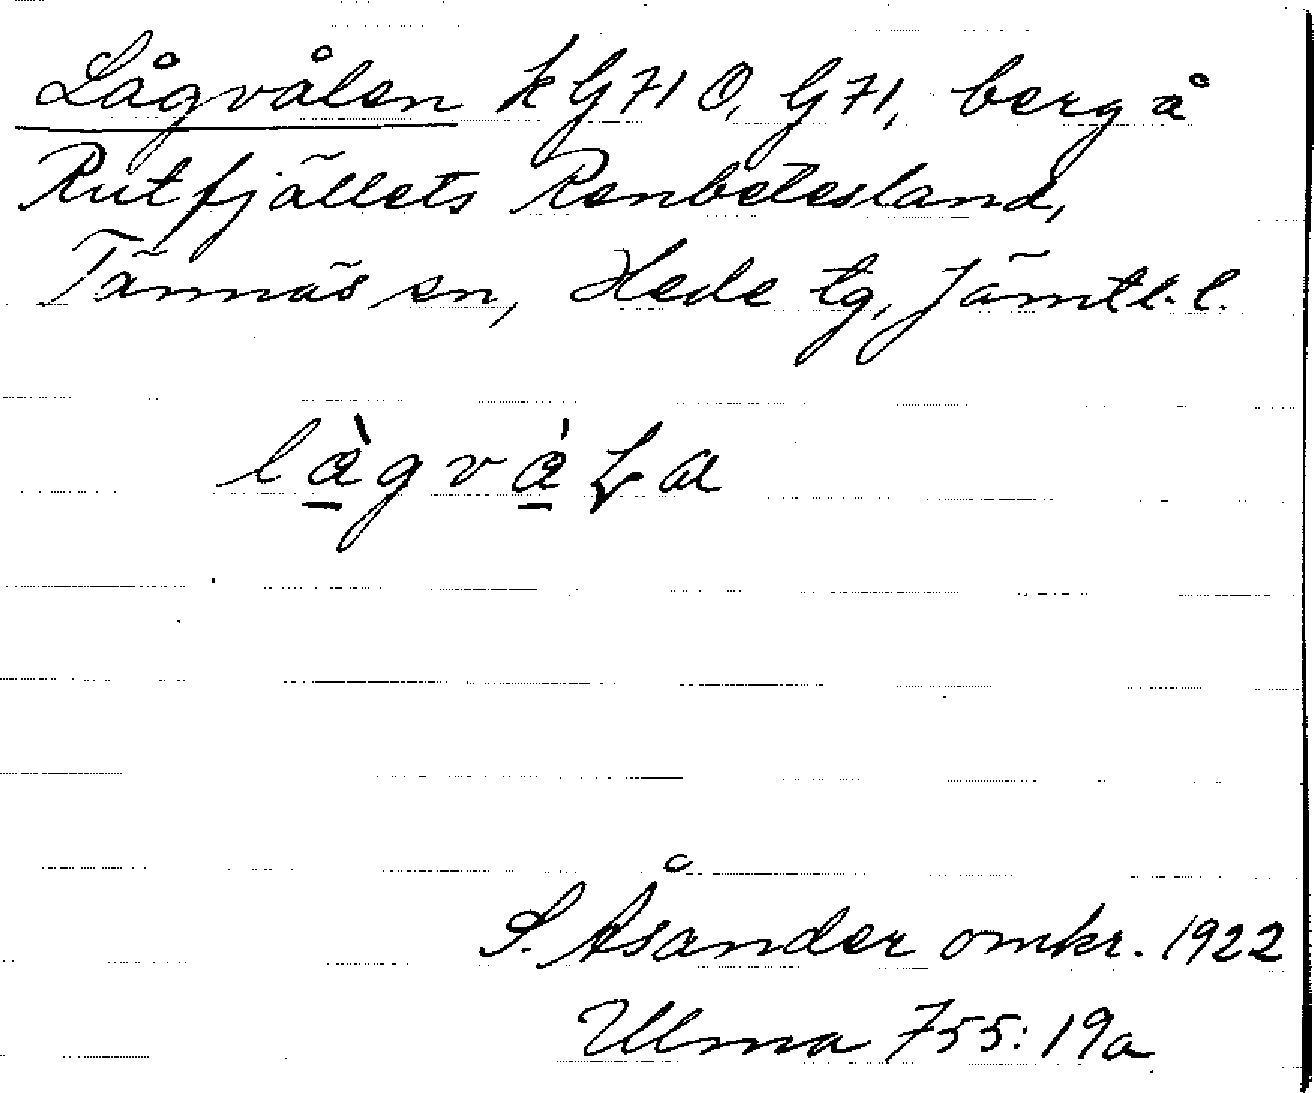 Lågvålen k G71 O, G71, berg å
Rutfjällets Renbetesland,
Tännäs sn, Hede tg, Jämtl. l.
S. Åsander omkr. 1922
Ulma 755: 19a